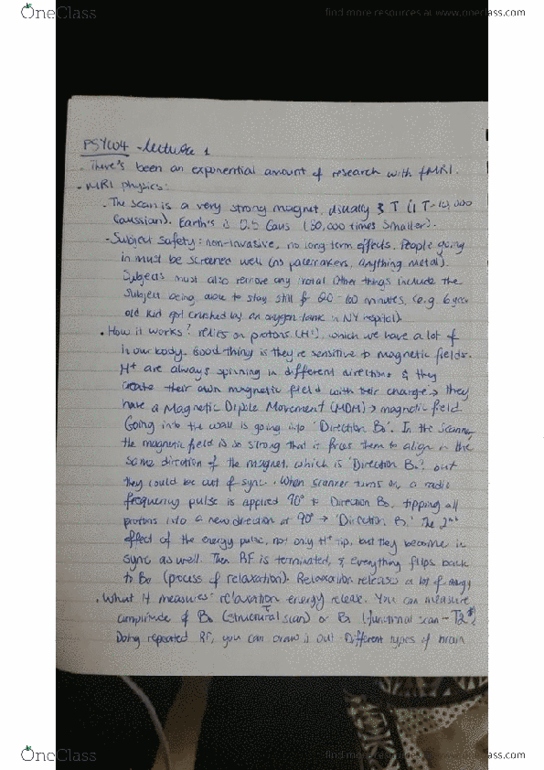 OneClass
find more resources at www.oneclass.com
PSYC04 - lecture 1
· There's been an exponential amount of research with fMRI.
· MRI physics:
· The scan is a very strong magnet, usually 3 T (1 T=10,000
Gaussian). Earth's is 0.5 Gaus (30,000 times smaller).
- Subject safety: non-invasive, no long term effects. People going
in must be screened well (no pacemakers, anything metal).
Subjects must also remove any Other things include the
subject being able to stay still for 20-100 minutes. (e.g. 6 year
old kid got crushed by an oxygen tank in NY hospital)
· How it works? relies on protons (H⁺), which we have a lot of
in our body. Good thing is they're sensitive to magnetic fields.
H⁺ are always spinning in different directions & they
create their own magnetic field with their charge → they
have a Magnetic Dipole Movement (MDM) → magnetic field.
Going into the wall is going into 'Direction B₀'. In the scanner,
the magnetic field is so strong that it forces them to align in the
same direction of the magnet, which is 'Direction B₀', but
they could be out of sync. When scanner turns on, a radio
frequency pulse is applied 90° to Direction B₀, tipping all
protons into a new direction at 90° → 'Direction B₁'. The 2ⁿᵈ
effect of the energy pulse, not only H⁺ tip, but they become in
sync as well. Then RF is terminated, & everything flips back
to B₀ (process of relaxation). Relaxation releases a lot of energy
· What it measures: relaxation energy release. You can measure
amplitude of B₀ (structural scan) or B₁ (functional scan - T2*)
Doing repeated RF, you can draw it out. Different types of brain
OneClass
find more resources at www.oneclass.com